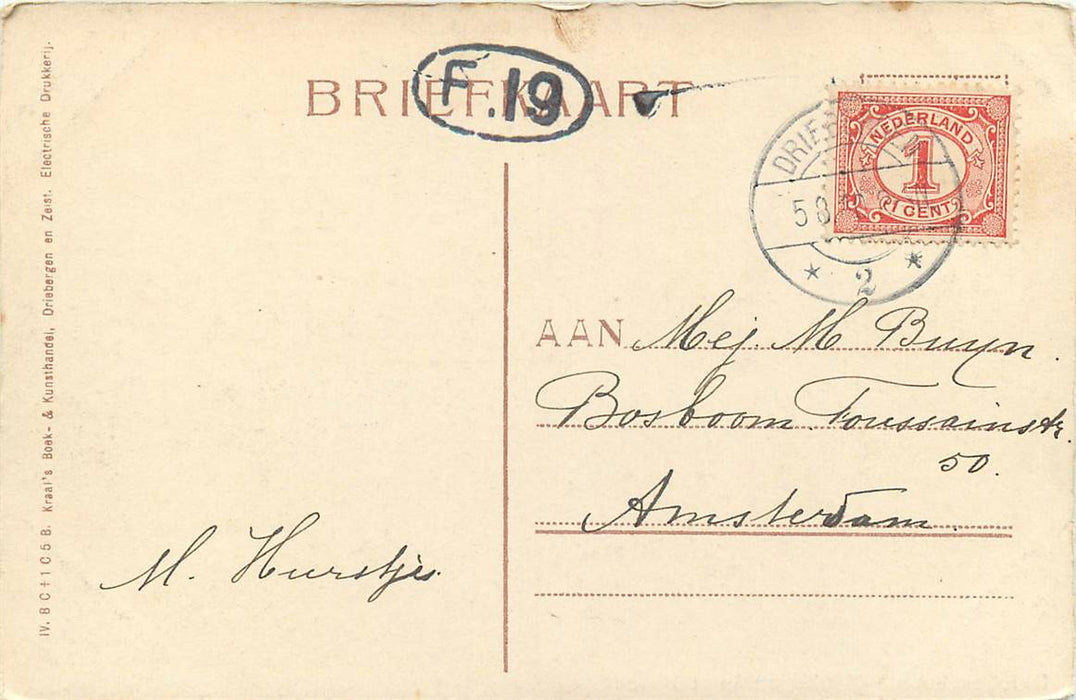 BRIEFKAART
F.19
NEDERLAND
1
1 CENT
5 8
2
AAN Mej. M Bruyn.
Bosboom Toussainstr.
50.
Amsterdam.
M. Hurstjes
Kraal's Boek- & Kunsthandel, Driebergen en Zeist. Electrische Drukkerij.